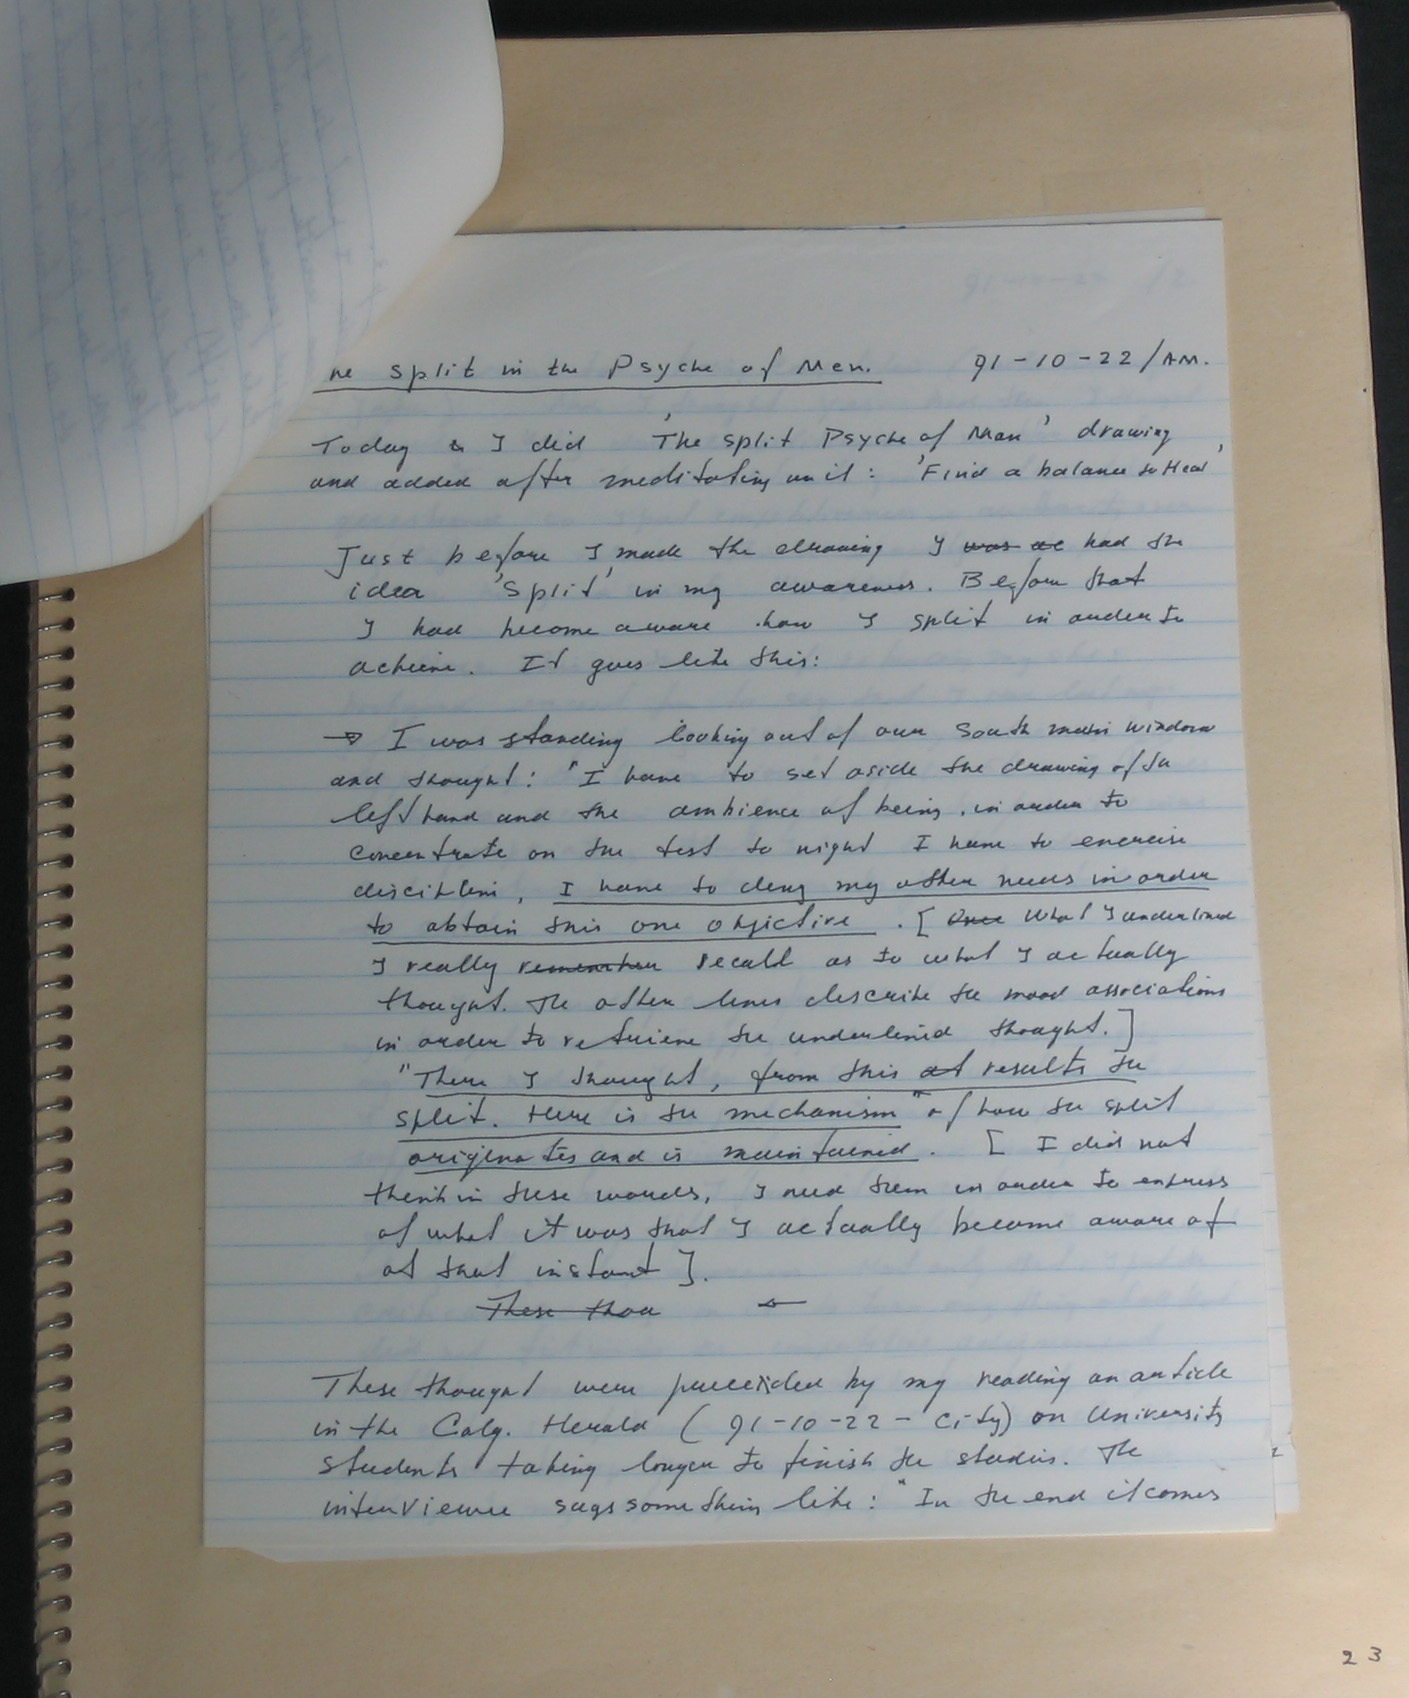 he split in the Psyche of Men. 91-10-22/AM.
Today & I did 'The split Psyche of Man' drawing
and added after meditating on it: 'Find a balance to Heal'
Just before I made the drawing I was ac had the
idea 'split' in my awareness. Before that
I had become aware how I split in order to
achieve. It goes like this:
→ I was standing looking out of our South main window
and thought: "I have to set aside the drawing of the
left hand and the ambience of being, in order to
concentrate on the test to night I have to exercise
disciplin, I have to deny my other needs in order
to obtain this one objective. [ Once What I underlined
I really remember recall as to what I actually
thought. The other lines describe the mood associations
in order to retrieve the underlined thought.]
"There I thought, from this at results the
split. Here is the mechanism" of how the split
originates and is maintained. [ I did not
think in these words, I need them in order to express
of what it was that I actually become aware of
at that instant ].
These thou ←
These thought were preceeded by my reading an article
in the Calg. Herald (91-10-22 - City) on University
students taking longer to finish the studies. The
interviewee says something like: "In the end it comes
23